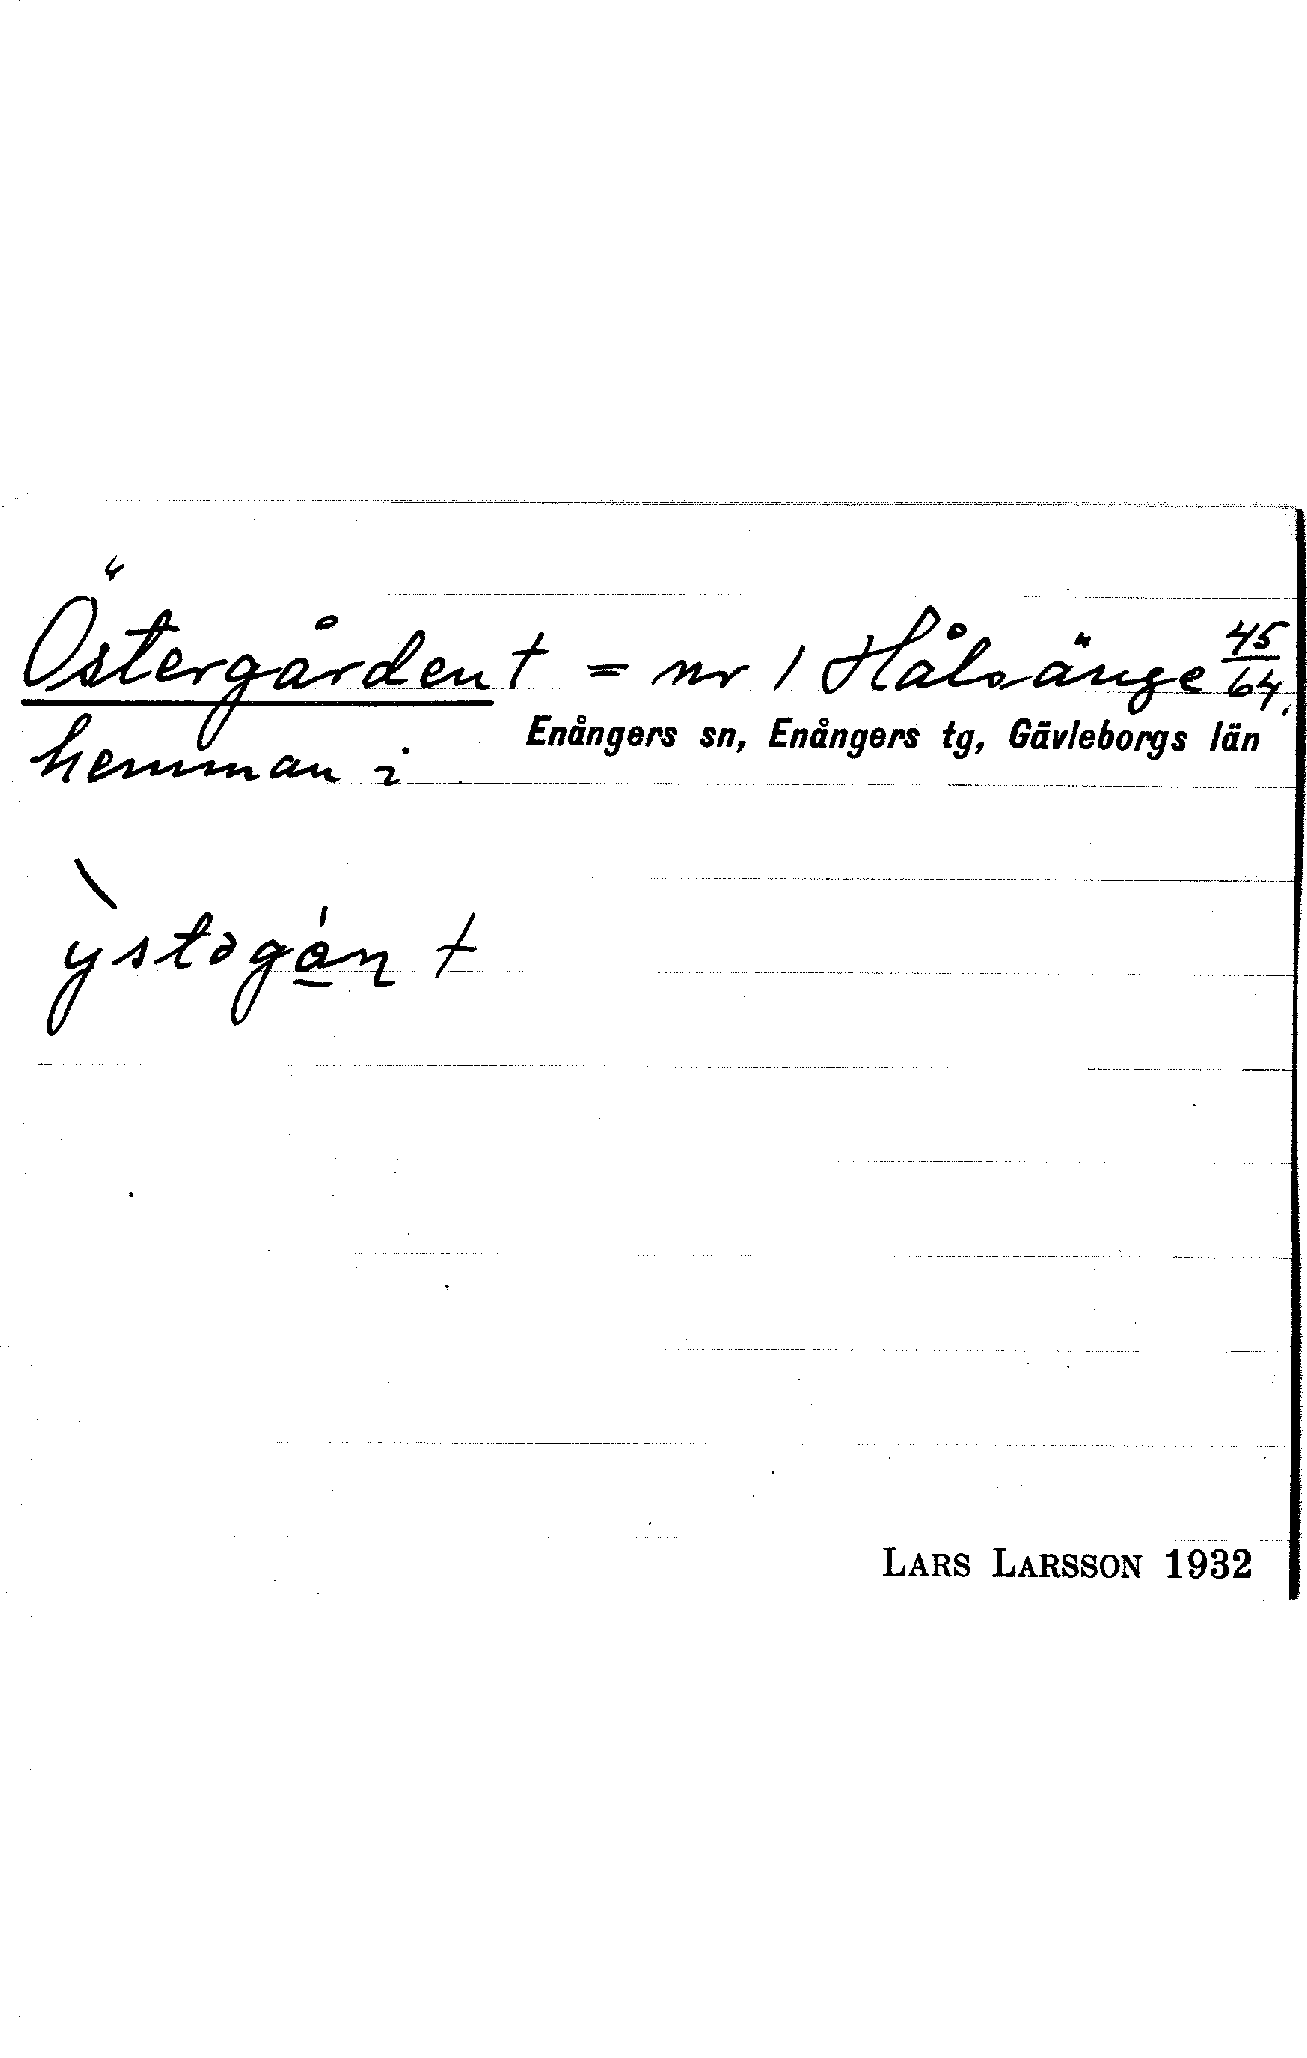 Östergården † = nr 1 Hålsänge 45/64,
hemman i Enångers sn, Enångers tg, Gävleborgs län
ỳstəgán †
LARS LARSSON 1932